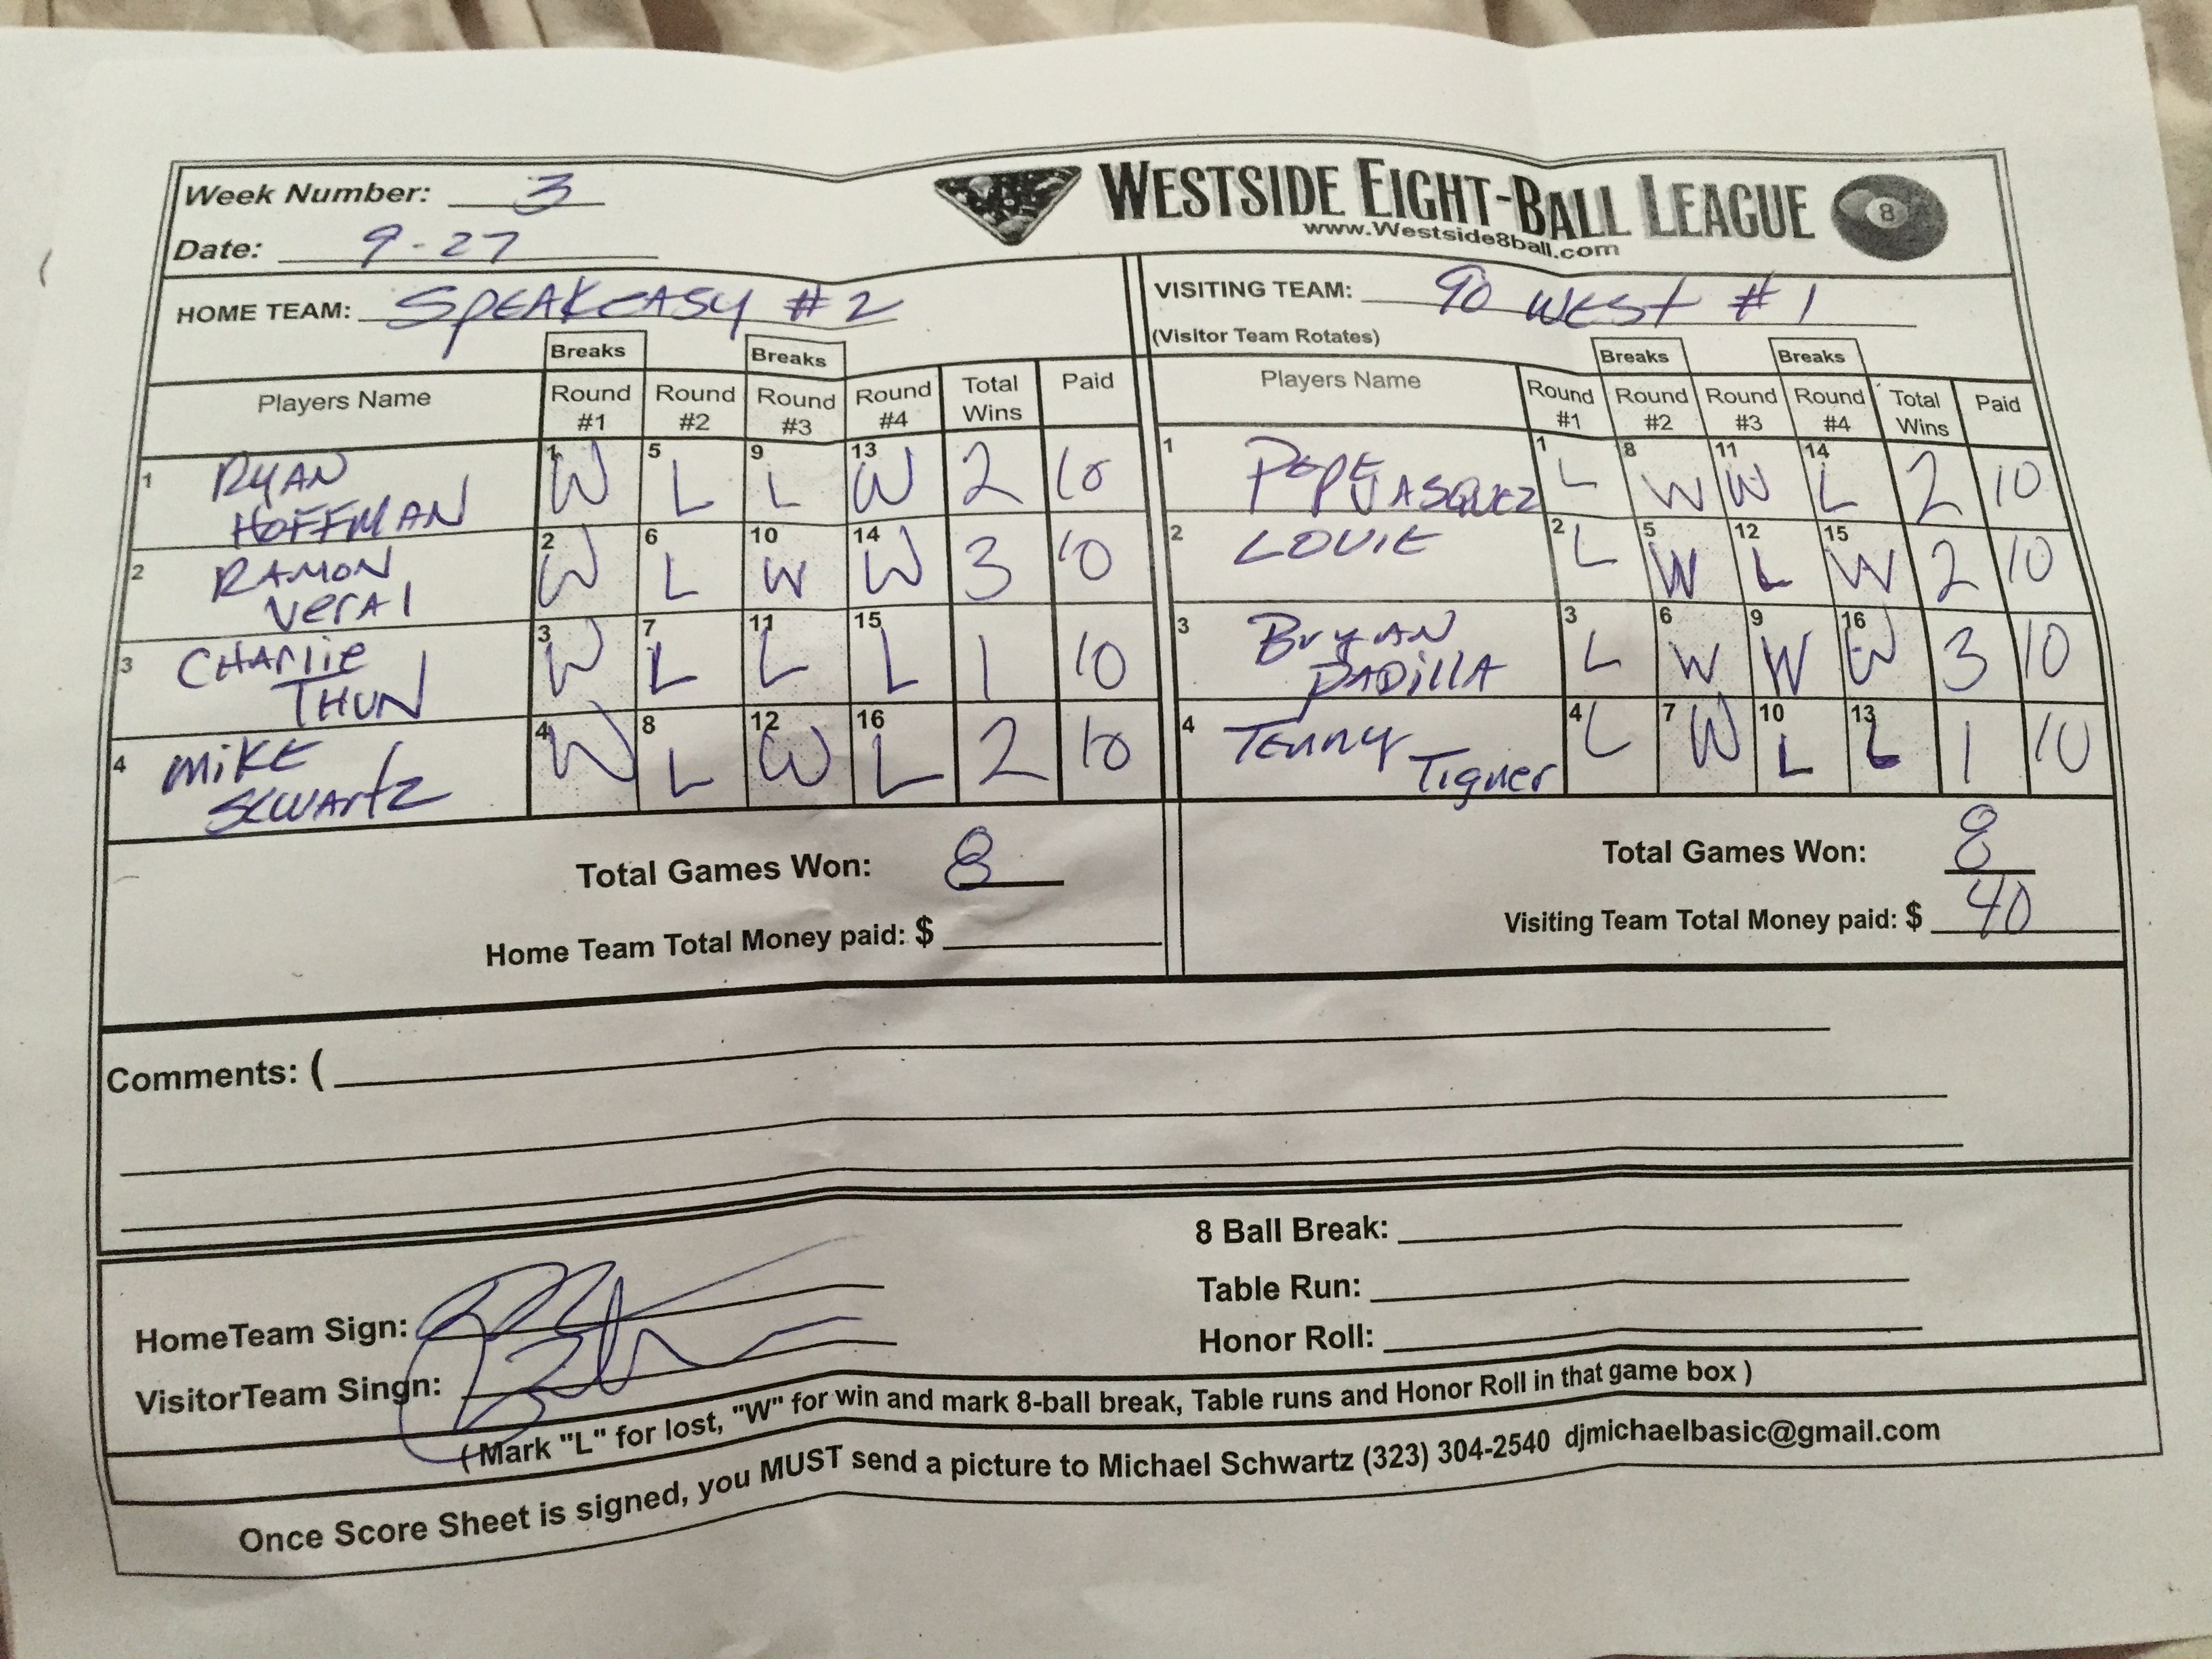 Week Number: 3
Date: 9-27
WESTSIDE EIGHT-BALL LEAGUE 8
www.Westside8ball.com
HOME TEAM: SPEAKEASY #2
VISITING TEAM: 90 WEST #1
(Visitor Team Rotates)
Breaks Breaks
Players Name Round #1 Round #2 Round #3 Round #4 Total Wins Paid
1 RYAN HOFFMAN 1 W 5 L 9 L 13 W 2 10
2 RAMON VERAI 2 W 6 L 10 W 14 W 3 10
3 CHARLIE THUN 3 W 7 L 11 L 15 L 1 10
4 MIKE SCWARTZ 4 W 8 L 12 W 16 L 2 10
Total Games Won: 8
Home Team Total Money paid: $
Breaks Breaks
Players Name Round #1 Round #2 Round #3 Round #4 Total Wins Paid
1 PEPE VASQUEZ 1 L 8 W 11 W 14 L 2 10
2 LOUIE 2 L 5 W 12 L 15 W 2 10
3 BRYAN PADILLA 3 L 6 W 9 W 16 W 3 10
4 TENNY Tigner 4 L 7 W 10 L 13 L 1 10
Total Games Won: 8
Visiting Team Total Money paid: $ 40
Comments: (
8 Ball Break:
Table Run:
Honor Roll:
HomeTeam Sign:
VisitorTeam Singn:
( Mark "L" for lost, "W" for win and mark 8-ball break, Table runs and Honor Roll in that game box )
Once Score Sheet is signed, you MUST send a picture to Michael Schwartz (323) 304-2540 djmichaelbasic@gmail.com